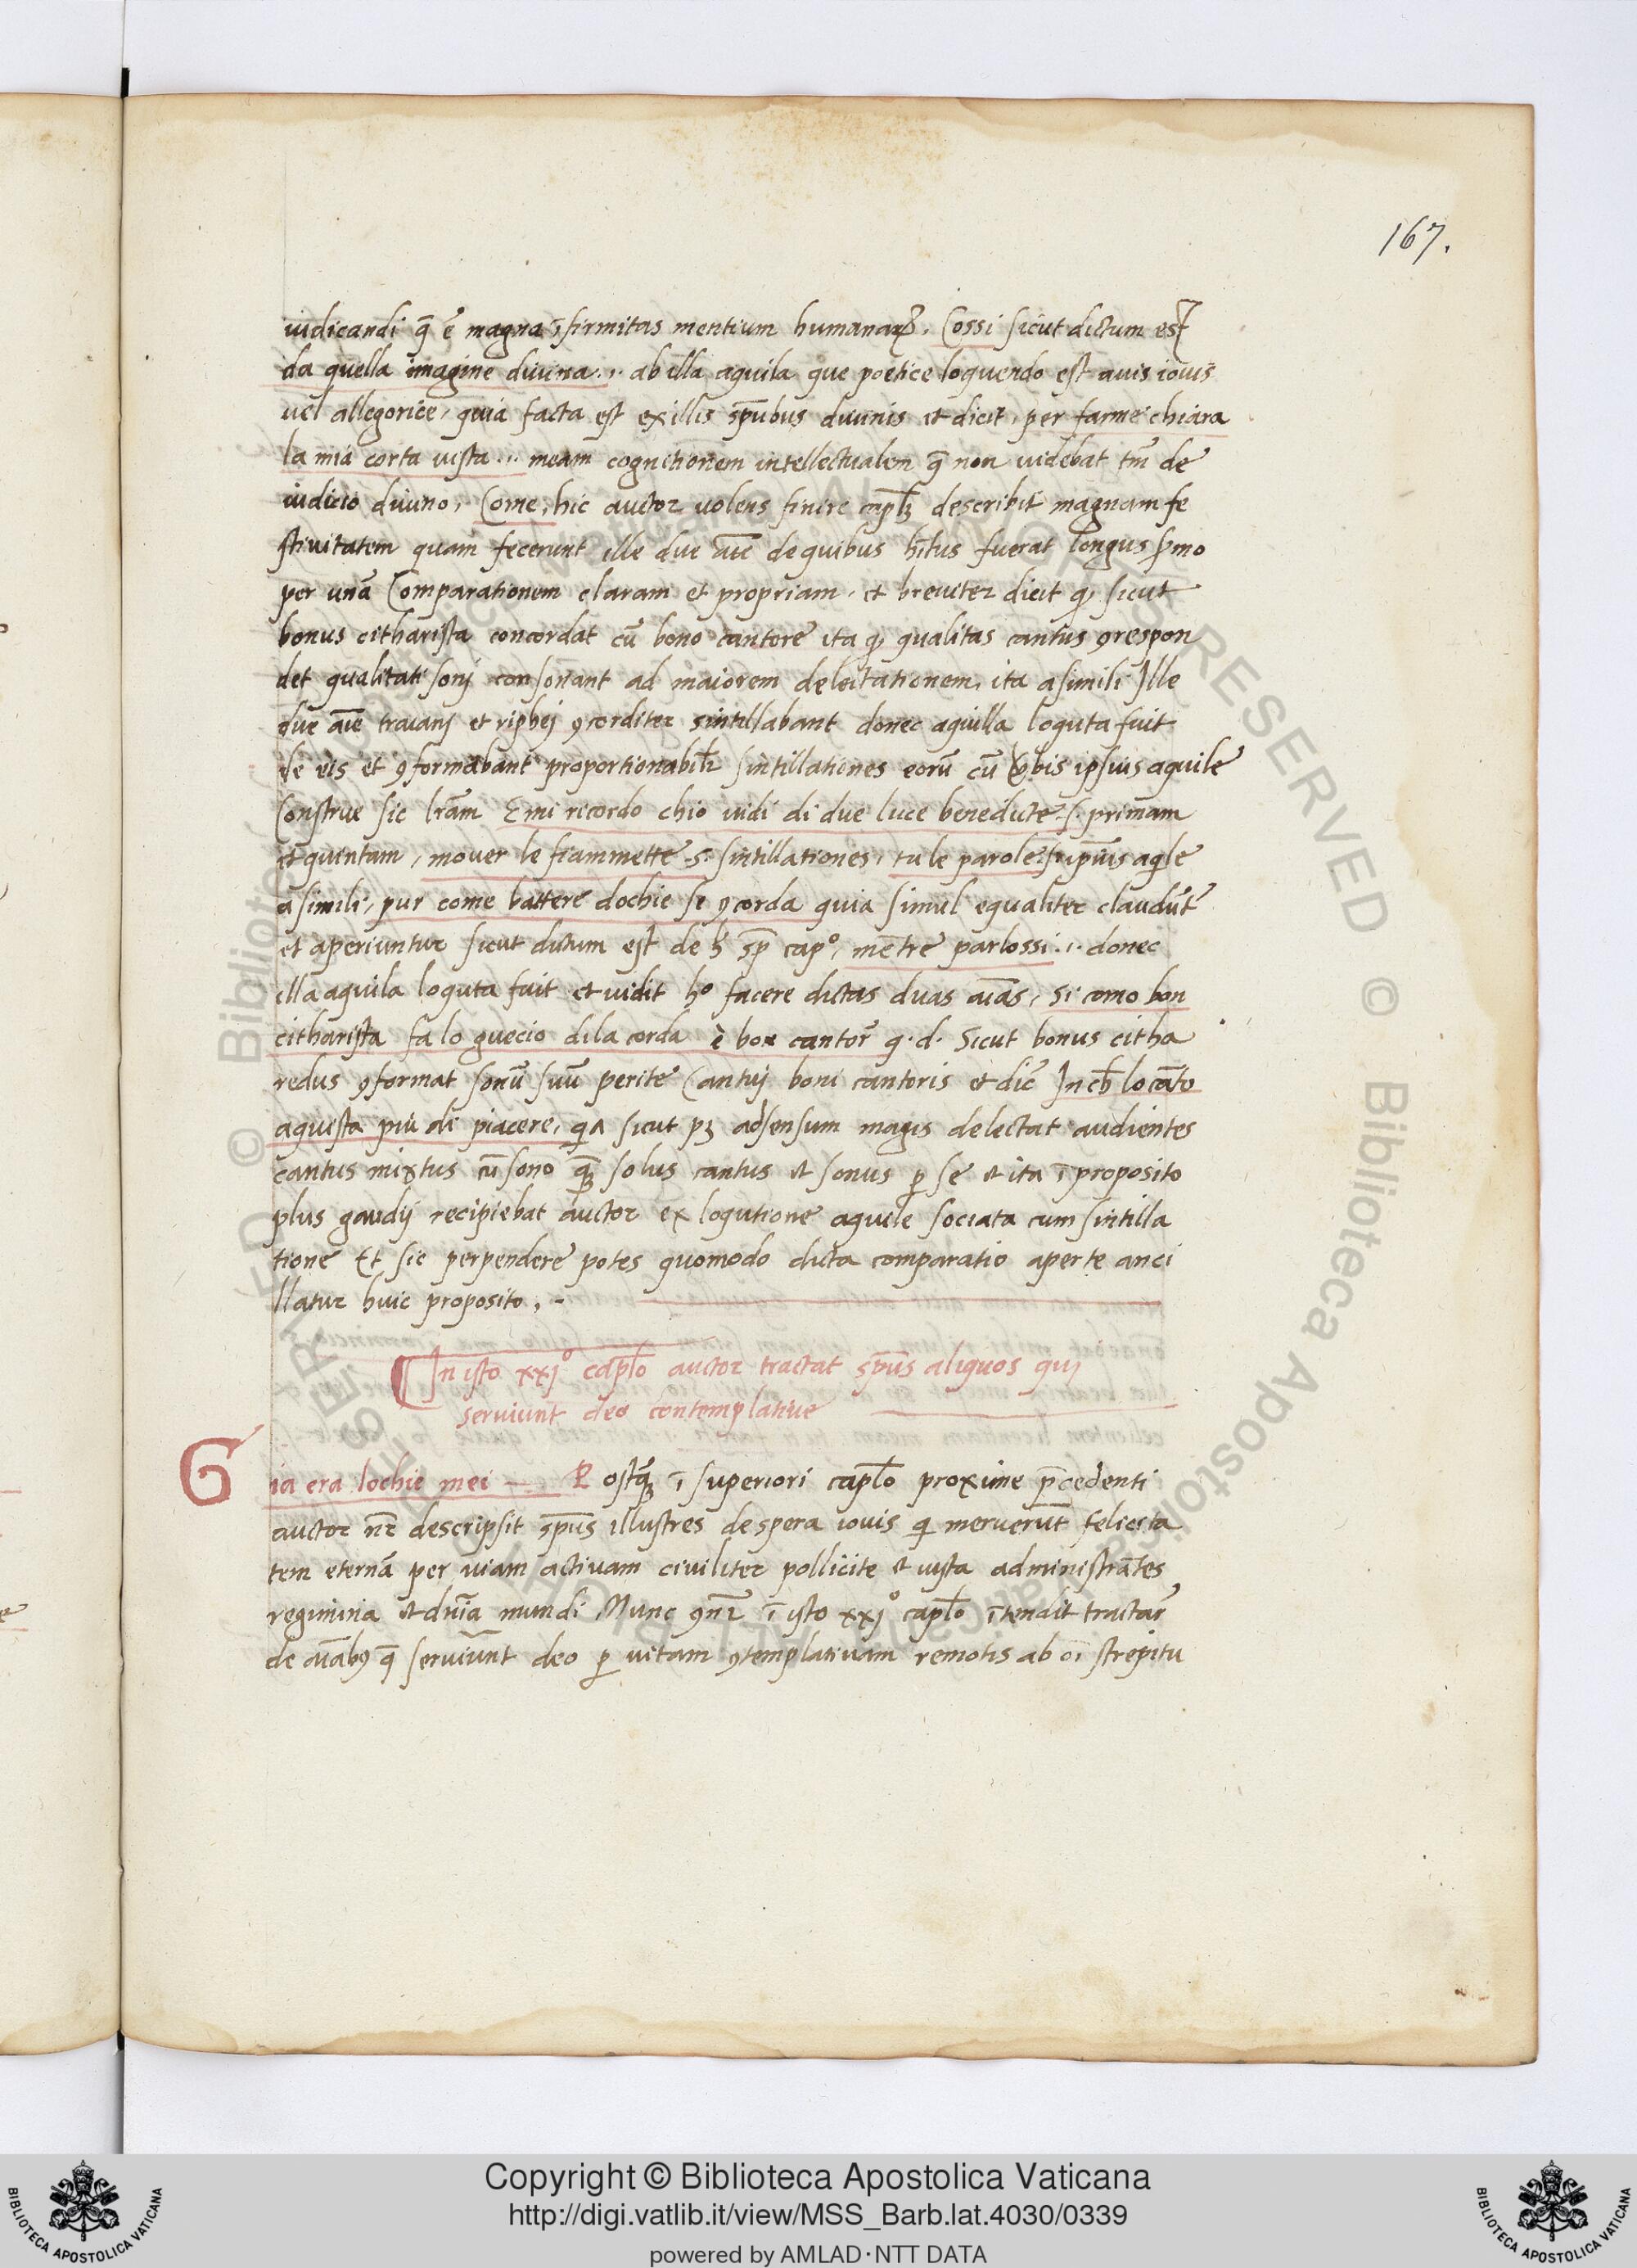 167.
iudicandi q̃ ẽ magna ĩfirmitas mentium humanaꝝ. Cossi sicut dictum est
da quella imagine diuina ... ab illa aquila que poetice loquendo est auis iouis
uel allegorice, quia facta est ex illis sp̃ubus diuinis et dicit, per farme chiara
la mia corta uista ... meam cognitionem intellectualem q̃ non uidebat tm̃ de
iudicio diuino, Come, hic auctor uolens finire capl̃ꝫ describit magnam fe
stiuitatem quam fecerunt ille due aĩe de quibus h̃itus fuerat longus s̃mo
per unã Comparationem claram et propriam, et breuiter dicit ꝙ sicut
bonus citharista concordat cũ bono cantore ita ꝙ qualitas cantus ꝯrespon
det qualitati sonj consonant ad maiorem delectationem, ita a simili Ille
due aĩe traianj et riphej ꝯcorditer sintillabant donec aquilla loquta fuit
de eis et ꝯformabant proportionabil̃r sintillationes eorũ cũ v̾bis ipsius aquile
Construe sic lr̃am E mi ricordo chio uidi di due luce benedicte .s. primam
et quintam, mouer le fiammette .s. sintillationes,
a simili, pur come battere dochie se ꝯcorda quia simul equaliter claudũt
et aperiuntur sicut dictum est de h̾ sp̃ cap°, mẽtre parlossi ... donec
illa aquila loquta fuit et uidit h° facere dictas duas aĩas, Si como bon
citharista fa lo guecio dila corda è bon cantor̃ q.d. Sicut bonus citha
redus ꝯformat sonũ suũ perite Cantuj boni cantoris et dic̃ In ch̃ lo cãto
aquista più di piacere, quia sicut pꝫ ad sensum magis delectat audientes
cantus mixtus cũ sono q̃ꝫ solus cantus et sonus ꝑ se et ita ĩ proposito
plus gaudij recipiebat auctor ex loqutione aquile sociata cum sintilla
tione Et sic perpendere potes quomodo dicta comparatio aperte anci
llatur huic proposito, -
¶ In isto xxj° capl̃o auctor tractat sp̃us aliquos quj
seruiunt deo contemplatiue
Gia era lochie mei — Postq̃ꝫ ĩ superiori capl̃o proxime p̃cedenti
auctor nr̃ descripsit sp̃us illustres de spera iouis qi meruerũt felicita
tem eternã per uiam actiuam ciuiliter pollicite et iusta administrãtes
regimina et dñia mundi Nunc ꝯñr ĩ isto xxj° capl̃o ĩtendit tractar̃
de aĩabꝯ q̃ seruiunt deo ꝑ uitam ꝯtemplatiuam remotis ab oĩ strepitu
Copyright © Biblioteca Apostolica Vaticana
http://digi.vatlib.it/view/MSS_Barb.lat.4030/0339
powered by AMLAD·NTT DATA
BIBLIOTECA APOSTOLICA VATICANA
BIBLIOTECA APOSTOLICA VATICANA